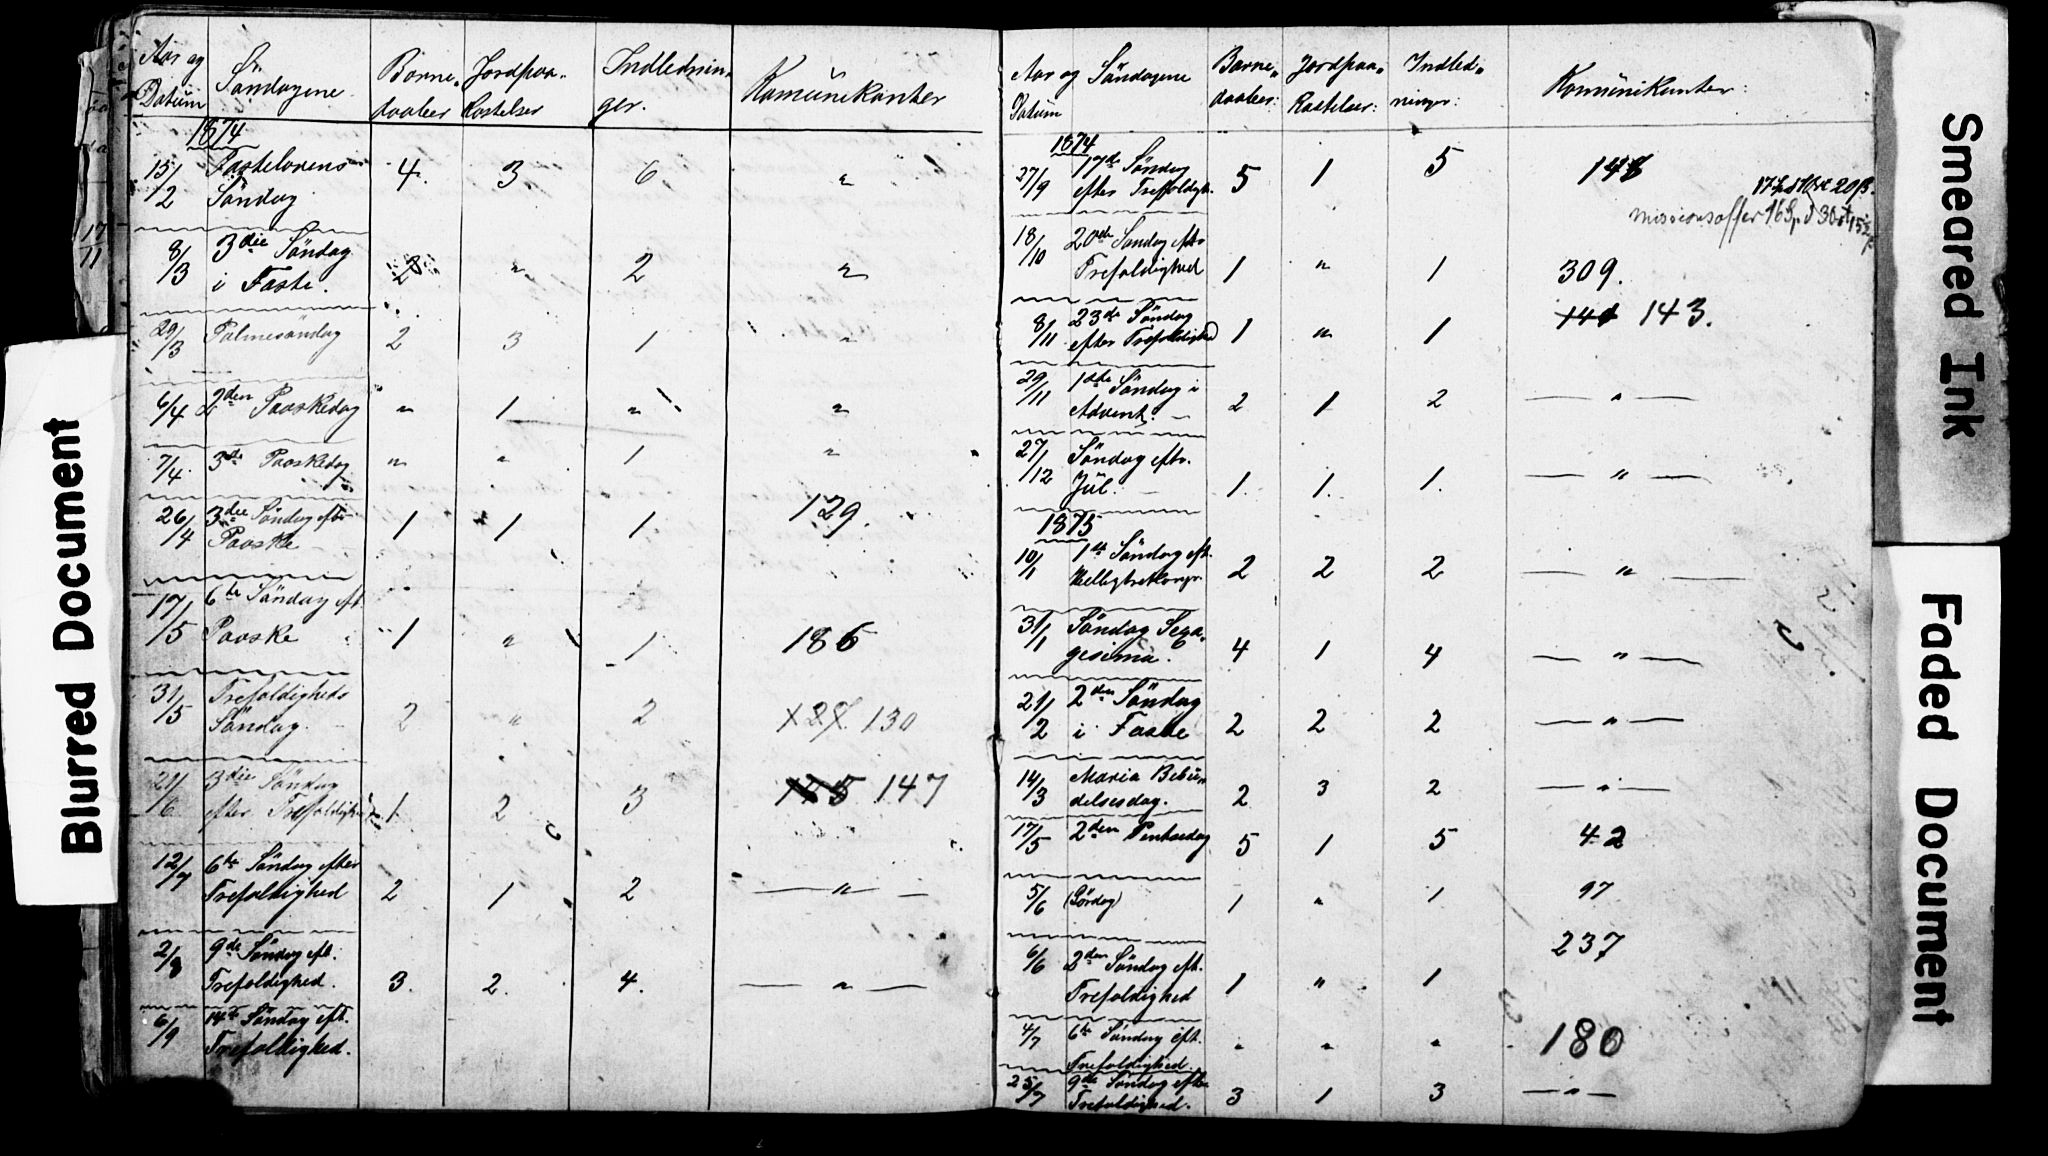 Blurred Document
Aar og Datum Söndagene Borne„ daaber Jordpaa„ kastelser Indlednin„ ger. Komünikanter
1874
15/2 Fastelavens Söndag 4. 3 6 „ „
8/3 3die Söndag i Faste. „ 2 „
29/3 Palmesöndag 2 3 1 „
6/4 2den Paaskedag „ 1 „ „
7/4. 3de Paaskedag „ „ 1 „
26/4 3die Söndag eft. Paaske 1 1 1 129.
17/5 6te Söndag eft. Paaske 1 „ 1 186
31/5 Trefoldigheds Söndag. 2 „ 2 127 130
21/6 3die Söndag efter Trefoldighed 1. 2 3 147
12/7 6te Söndag efter Trefoldighed 2 1 2 — „ —
2/8 9de Söndag eft. Trefoldighed. 3. 2. 4. — „ —
6/9 14te Söndag eft. Trefoldighed.
Aar og Datum Söndagene Barne„ daaber: Jordpaa„ Kastelser: Indled„ ninger: Komünikanter:
1874
27/9 17de Söndag efter Trefoldigh. 5 1 5
missionsoffer
18/10 20de Söndag eftr Trefoldighed 1 „ 1 309.
8/11 23de Söndag efter Trefoldighed 1 „ 1 143.
29/11 1ste Söndag i Advent. 2 1 2 — „ —
27/12 Söndag eftr. Jül. 1. 1. 1. — „ —
1875
10/1 1ste Söndag eft. Helligtrekonger. 2 2 2 — „ —
31/1 Söndag Sexa„ gesima. 4 1 4 — „ —
21/2 2den Söndag i Faste 2 2 2 — „ —
14/3 Maria Bebü„ delsesdag. 2 3 2 — „ —
17/5 2den Pintsedag 5 1 5 42
5/6 (Lördag) 1 „ 1 97
6/6 2den Söndag eft. Trefoldighed 1 „ 1 237
4/7 6te Söndag eft. Trefoldighed. „ „ „ 180
25/7 9de Söndag efter Trefoldighed. 3 1 3 — „ —
Smeared Ink
Faded Document